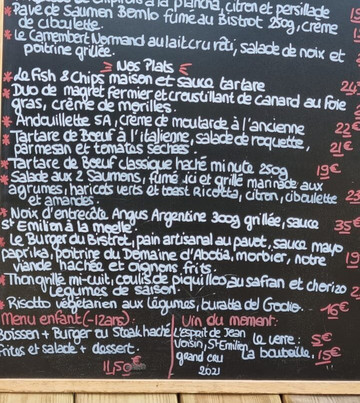 à la plancha, citron et persillade
* Pavé de Saumon Bømlo fumé au Bistrot 250g, crème
de ciboulette.
* Le Camembert Normand au lait cru rôti, salade de noix et
poitrine grillée.
Nos Plats
* Le Fish & Chips maison et sauce tartare
* Duo de magret fermier et croustillant de canard au foie
gras, crème de morilles.
* Andouillette 5A, crème de moutarde à l'ancienne 22€
* Tartare de Boeuf à l'italienne, salade de roquette,
parmesan et tomates séchées 21€
* Tartare de Boeuf classique haché minute 250g 19€
* Salade aux 2 Saumons, fumé ici et grillé marinade aux
agrumes, haricots verts et toast Ricotta, citron, ciboulette
et amandes.
* Noix d'entrecôte Angus Argentine 300g grillée, sauce
St Emilion à la moelle. 35€
* Le Burger du Bistrot, pain artisanal au pavot, sauce mayo
paprika, poitrine du Domaine d'Abotia, morbier, notre 19
viande hachée et oignons frits.
* Thon grillé mi-cuit, coulis de piquillos au safran et chorizo
Légumes de saison.
* Risotto végétarien aux légumes, buratta del Godio. 16€
Menu enfant (-12ans):
Boisson + Burger ou Steak haché
Frites et salade + dessert.
11,50€
Vin du moment:
L'esprit de Jean
Voisin, St-Emilion le verre: 5€
grand cru La bouteille: 15€
2021